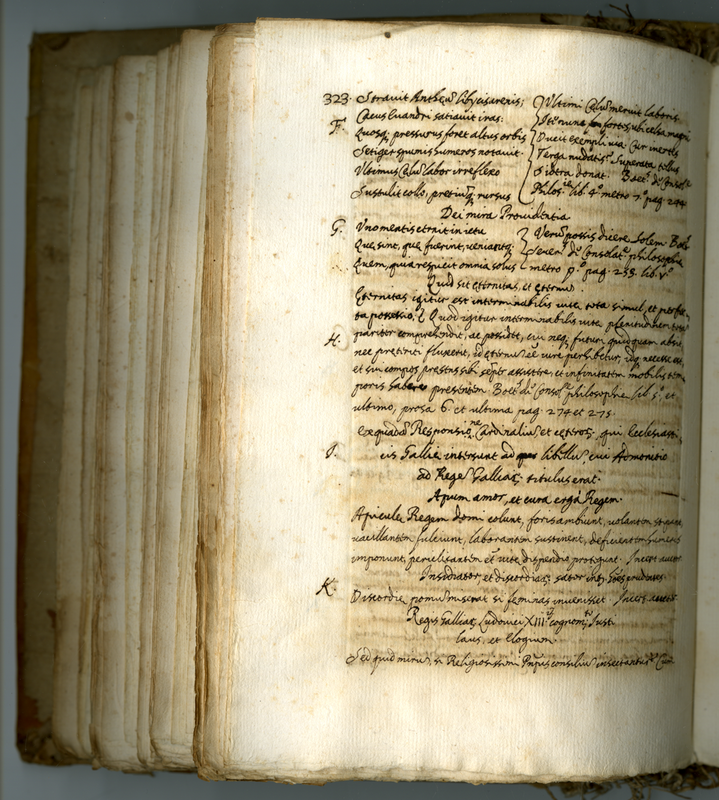 323. Stravit Antheũ libycis arenis;
Cacus Euandri satiavit iras:
F. Quosq; pressurus foret altus orbis
Setiger spumis humeros notavit.
Ultimus Cœlũ labor irreflexo
Sustulit collo, pretiũq; rursus
Ultimi Cœlũ meruit laboris.
Ite nunc fortes, ubi celsa magni
Ducit exempli via. Cur inertes
Terga nudatis? Superata tellus
Sidera donat. Boet. de Consol.
Philos. lib. 4º metro 7º pag. 244
Dei mira Providentia
G. Uno mentis cernit in ictu
Quæ sint, quæ fuerint, veniantq;
Quem, quia respicit omnia solus
Verũ possis dicere Solem. Boet.
Seuer. de Consolat. philosophiæ
metro pº pag. 255. lib. Vº
Quid sit æternitas, et æternũ.
Eternitas igitur est interminabilis vitæ tota simul, et perfec
ta possessio. Quod igitur interminabilis vitæ plenitudinem totã
H. pariter comprehendit, ac possidet, cui neq; futuri quidquam absit,
nec præteriti fluxerit, id æternũ eẽ iure perhibetur, idq; necesse est,
et sui compos præsens sibi sẽper assistere, et infinitatem mobilis tem
poris habere præsentem. Boet. de Consol. philosophiæ lib. 5. et
ultimo, prosa 6. et ultima pag. 274 et 275.
Ex quadã Responsione Cardinaliũ, et ceteroȝ, qui Ecclesiasti
I. cis Galliæ intersunt ad libellũ, cui Admonitio
ad Regẽ Galliaȝ titulus erat.
Apum amor, et cura ergà Regem.
Apiculæ Regem domi colunt, foris ambiunt, volantem
vacillantẽ fulciunt, laborantem sustinent, deficientem humeris
imponunt, periclitantẽ cũ vitæ dispendio protegunt. Incert. auctor
Insidiator, et discordiaȝ sator
K. Discordiæ pomũ miserat si feminas invenisset. Incert. auctor
Regis Galliaȝ Ludovici XIII cognom.to Justi
laus, et elogium.
Sed quid mirũ, si Religiosissimi Prĩpis consiliũ insectantur?